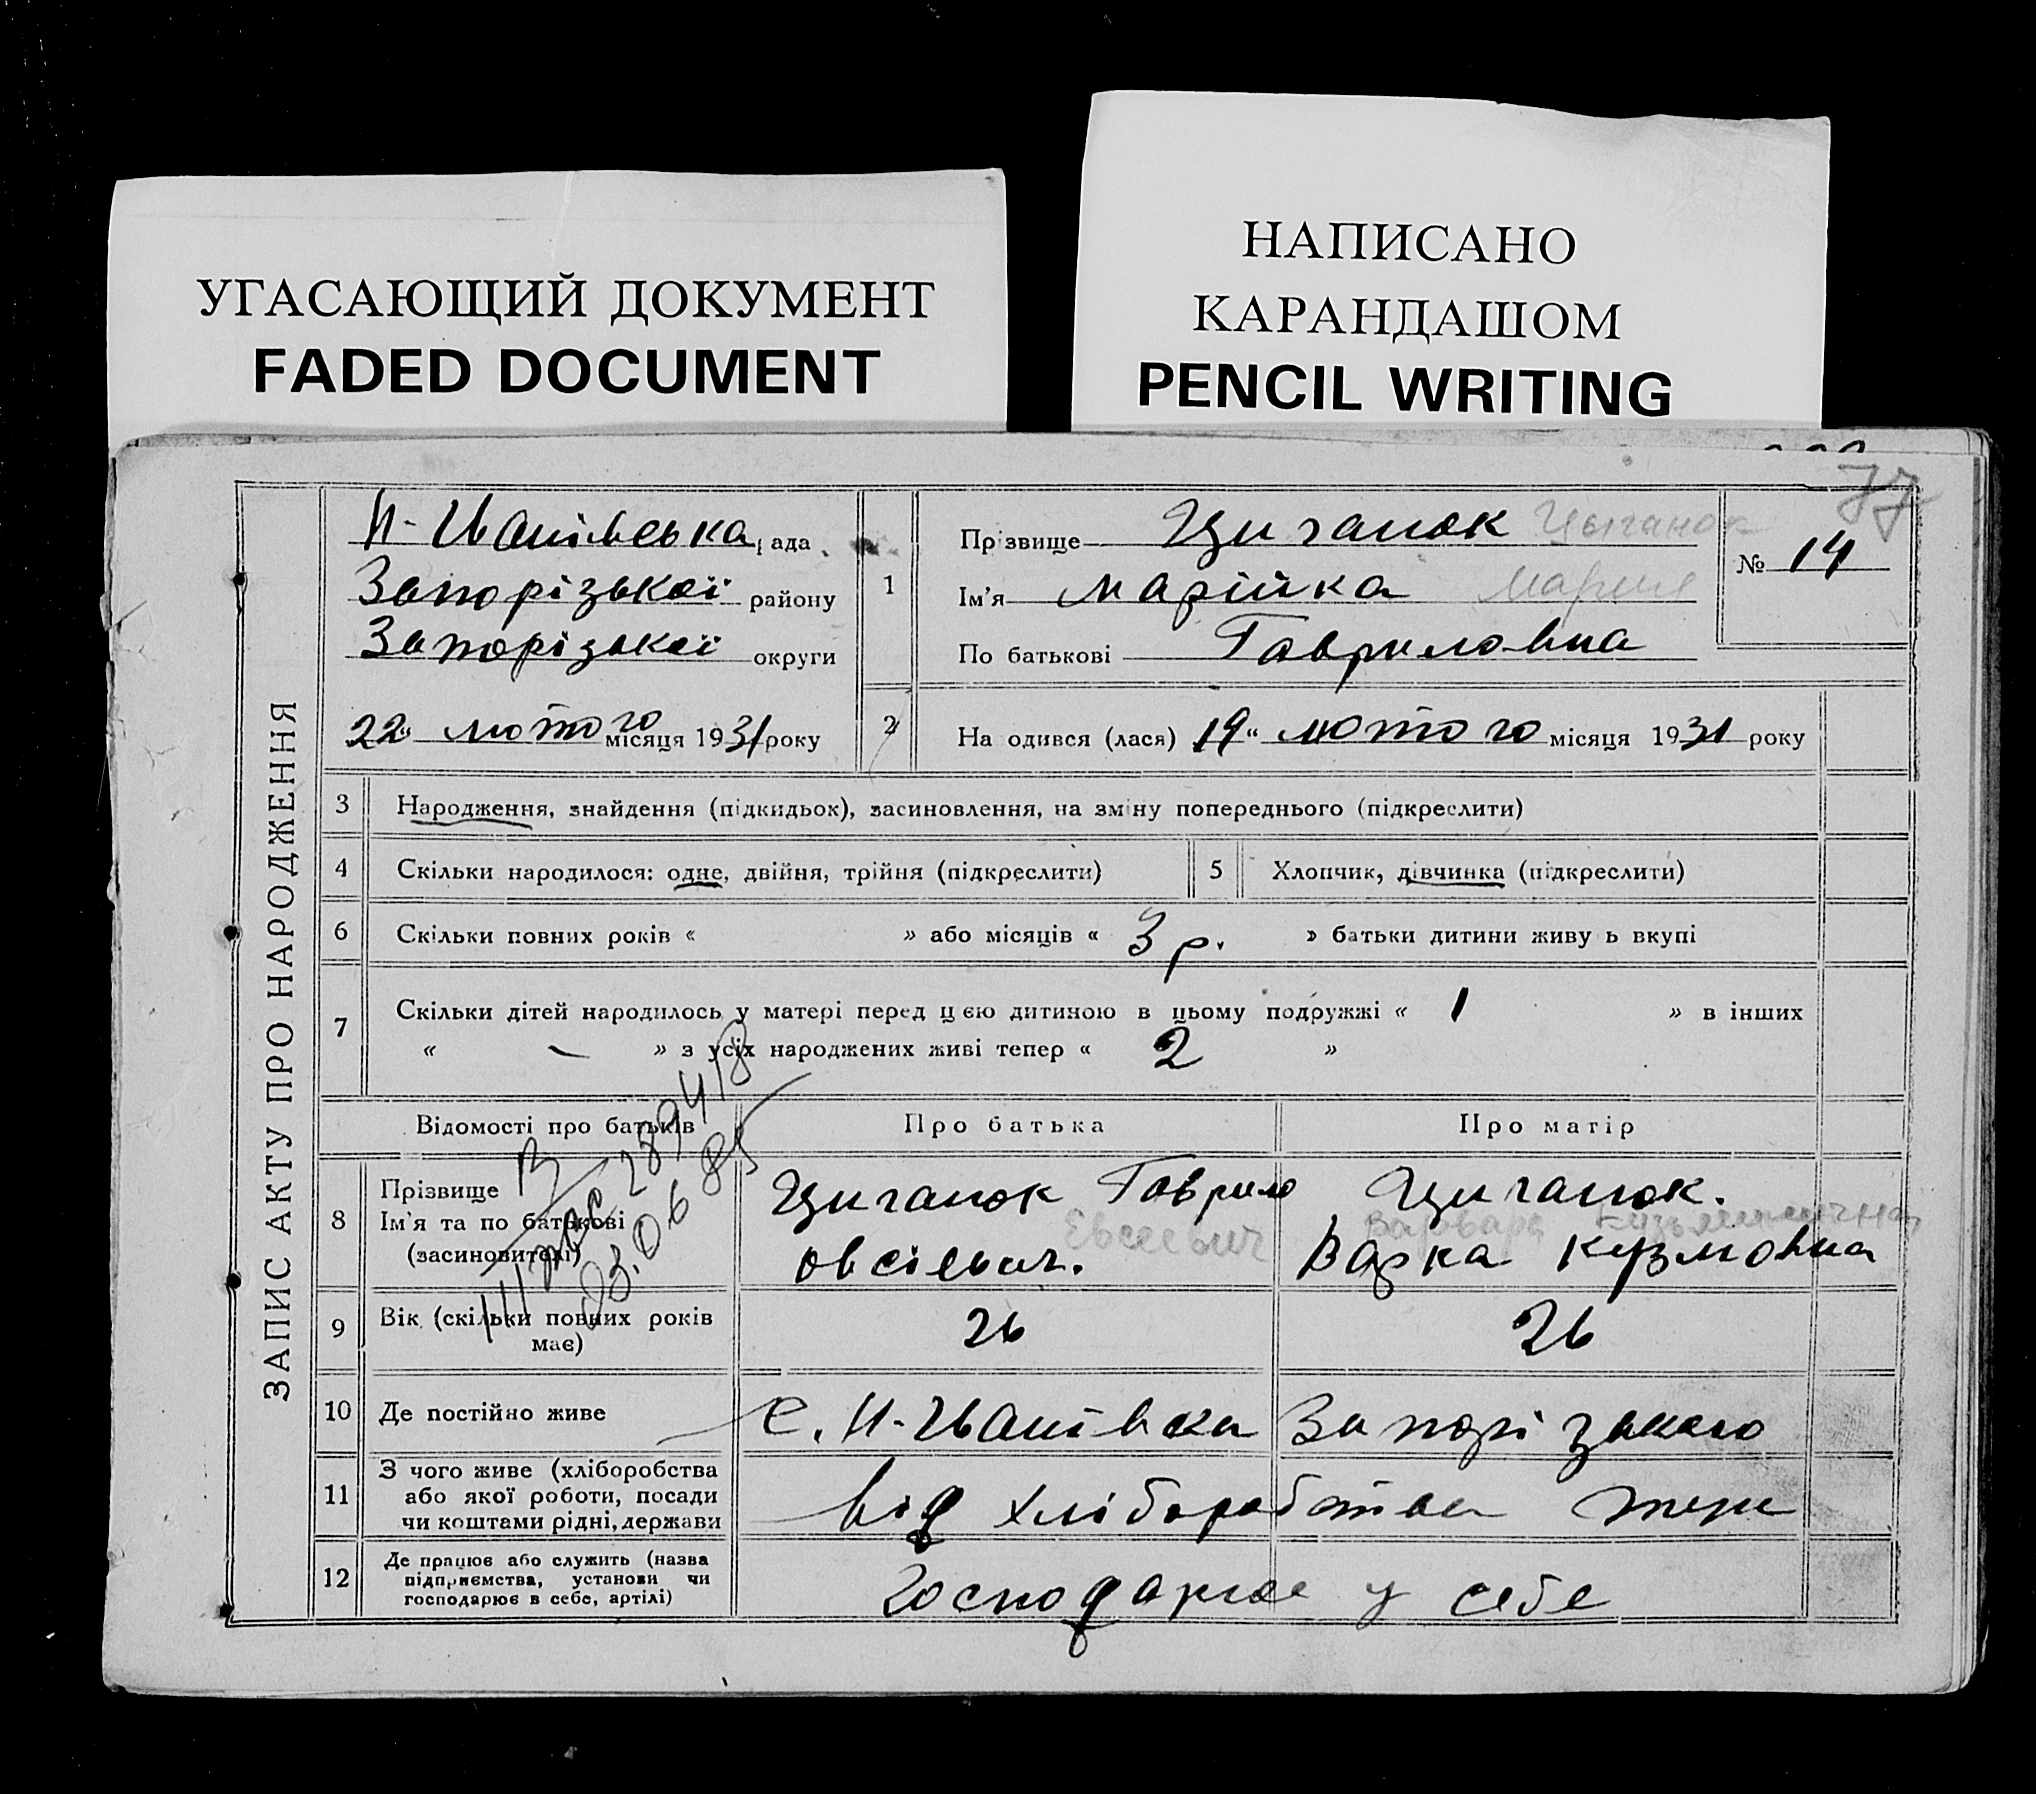 УГАСАЮЩИЙ ДОКУМЕНТ
FADED DOCUMENT
НАПИСАНО
КАРАНДАШОМ
PENCIL WRITING
77
ЗАПИС АКТУ ПРО НАРОДЖЕННЯ
Н-Іванівська рада
Запорізької району
Запорізької округи
22 лютого місяця 1931 року
1
Прізвище Циганок Цыганок
Ім'я Марійка Мария
По батькові Гавриловна
№ 14
2
На одився (лася) 19 " лютого місяця 1931 року
3 Народження, знайдення (підкидьок), засиновлення, на зміну попереднього (підкреслити)
4 Скільки народилося: одне, двійня, трійня (підкреслити) 5 Хлопчик, дівчинка (підкреслити)
6 Скільки повних років « » або місяців « 3 р. » батьки дитини живу ь вкупі
7 Скільки дітей народилось у матері перед цією дитиною в цьому подружжі « 1 » в інших
« — » з усіх народжених живі тепер « 2 »
Відомості про батьків Про батька Про матір
8 Прізвище
Ім'я та по батькові
(засиновителі)
Циганок Гаврило
Евсеевич
овсієвич.
Циганок.
Варвара Кузьминична
Варка Кузмовна
03.06 85
9 Вік (скільки повних років має) 26 26
10 Де постійно живе с. Н-Іванівка Запорізького
11 З чого живе (хліборобства
або якої роботи, посади
чи коштами рідні, держави
від хліборобства
12 Де працює або служить (назва
підприємства, установи чи
господарює в себе, артілі)
господарює у себе